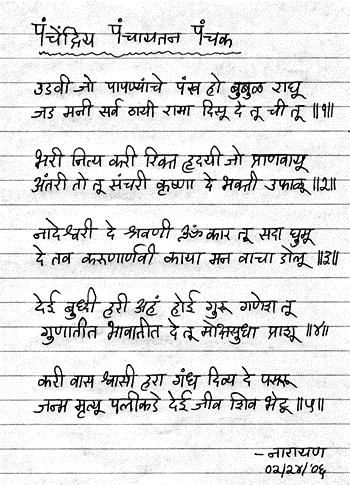 पंचेंद्रिय पंचायतन पंचक
उडवी जो पापण्यांचे पंख हो बुबुळ राघू
जड मनी सर्व ठायी रामा दिसू दे तू ची तू ॥१॥
भरी नित्य करी रिक्त हृदयी जो प्राणवायू
अंतरी तो तू संचरी कृष्णा दे भक्ती उफाळू ॥२॥
नादेश्वरी दे श्रवणी ॐ कार तू सदा घुमू
दे तव करुणार्णवी काया मन वाचा डोलू ॥३॥
देई बुध्दी हरी अहं होई गुरू गणेश तू
गुणातीत भावातीत दे तू मोक्षसुधा प्राशू ॥४॥
करी वास श्वासी हरा गंध दिव्य दे पसरू
जन्म मृत्यू पलीकडे देई जीव शिव भेटू ॥५॥
– नारायण
०२/२४/०६